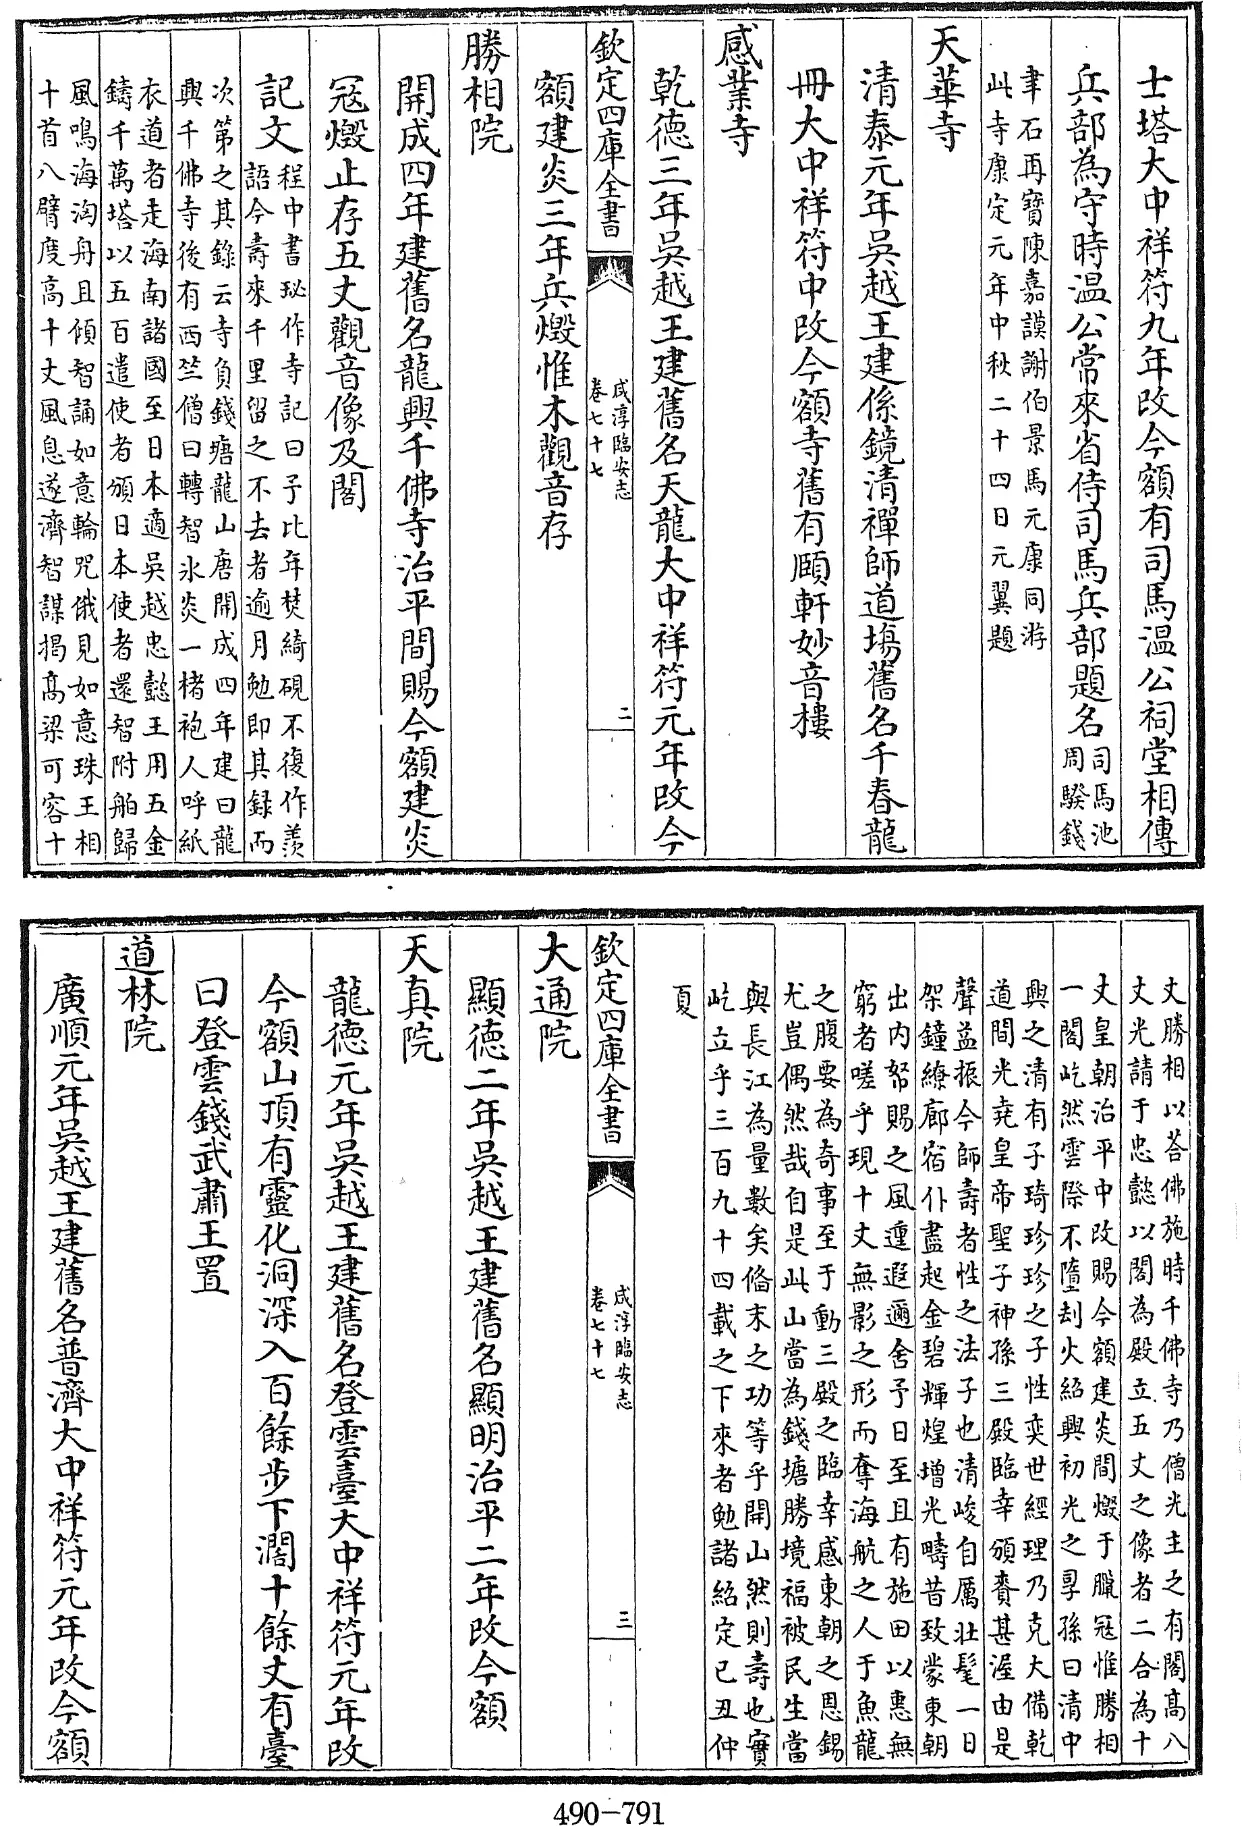 士塔大中祥符九年改今額有司馬溫公祠堂相傳
兵部為守時溫公常來省侍司馬兵部題名司馬池
周騤錢
聿石再寶陳嘉謨謝伯景馬元康同游
此寺康定元年中秋二十四日元翼題
天華寺
清泰元年吳越王建係鏡清禪師道場舊名千春龍
冊大中祥符中改今額寺舊有頤軒妙音樓
感業寺
乾德三年吳越王建舊名天龍大中祥符元年改今
欽定四庫全書
咸淳臨安志
卷七十七
二
額建炎三年兵燬惟木觀音存
勝相院
開成四年建舊名龍興千佛寺治平間賜今額建炎
冦燬止存五丈觀音像及閣
記文程中書珌作寺記曰予比年焚綺硯不復作羨
語今壽來千里留之不去者逾月勉即其録而
次第之其錄云寺負錢塘龍山唐開成四年建曰龍
興千佛寺後有西竺僧曰轉智氷炎一楮袍人呼紙
衣道者走海南諸國至日本適吳越忠懿王用五金
鑄千萬塔以五百遣使者頒日本使者還智附舶歸
風鳴海淘舟且傾智誦如意輪咒俄見如意珠王相
十首八臂度高十丈風息遂濟智謀揭高梁可容十
丈勝相以荅佛施時千佛寺乃僧光主之有閣高八
丈光請于忠懿以閣為殿立五丈之像者二合為十
丈皇朝治平中改賜今額建炎間燬于臘冦惟勝相
一閣屹然雲際不墮刦火紹興初光之㝵孫曰清中
興之清有子琦珍珍之子性奕世經理乃克大備乾
道間光堯皇帝聖子神孫三殿臨幸頒賚甚渥由是
聲益振今師壽者性之法子也清峻自厲壯髦一日
架鐘繚廊宿仆盡起金碧輝煌增光疇昔致蒙東朝
出内帑賜之風連遐邇舍予日至且有施田以惠無
窮者嗟乎現十丈無影之形而奪海航之人于魚龍
之腹要為奇事至于動三殿之臨幸感東朝之恩錫
尤豈偶然哉自是此山當為錢塘勝境福被民生當
與長江為量數矣脩末之功等乎開山然則壽也實
屹立乎三百九十四載之下來者勉諸紹定己丑仲
夏
欽定四庫全書
咸淳臨安志
卷七十七
三
大通院
顯德二年吳越王建舊名顯明治平二年改今額
天真院
龍德元年吳越王建舊名登雲臺大中祥符元年改
今額山頂有靈化洞深入百餘步下濶十餘丈有臺
曰登雲錢武肅王置
道林院
廣順元年吳越王建舊名普濟大中祥符元年改今額
490-791